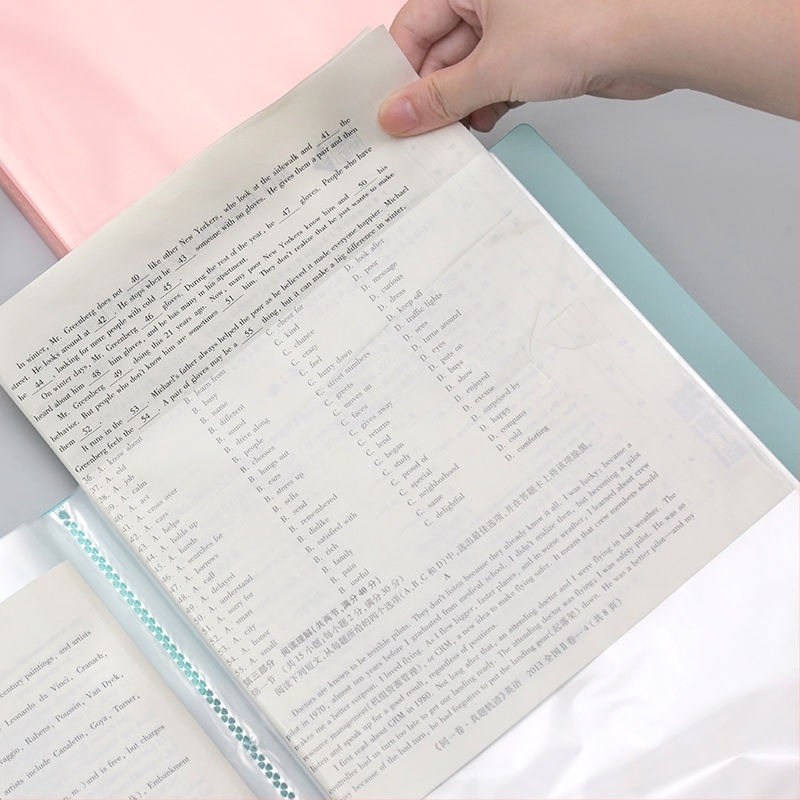 In winter, Mr. Greenberg does not 40 like other New Yorkers, who look at the sidewalk and 41 the
street. He looks around at 42 . He stops when he 43 someone with no gloves. He gives them a pair and then
he 44 , looking for more people with cold 45 .
On winter days, Mr. Greenberg 46 gloves. During the rest of the year, he 47 gloves. People who have
heard about him 48 him gloves, and he has many in his apartment.
Mr. Greenberg 49 doing this 21 years ago. Now, many poor New Yorkers know him and 50 his
behavior. But people who don't know him are sometimes 51 him. They don't realize that he just wants to make
them 52 .
It runs in the 53 . Michael's father always helped the poor as he believed it made everyone happier. Michael
Greenberg feels the 54 . A pair of gloves may be a 55 thing, but it can make a big difference in winter.
36. A. know about B. learn from C. cheer for D. look after
37. A. old B. busy C. kind D. poor
38. A. job B. name C. chance D. message
39. A. calm B. different C. crazy D. curious
40. A. act B. sound C. feel D. dress
41. A. cross over B. drive along C. hurry down D. keep off
42. A. cars B. people C. street numbers D. traffic lights
43. A. helps B. chooses C. greets D. sees
44. A. holds up B. hangs out C. moves on D. turns around
45. A. hands B. ears C. faces D. eyes
46. A. searches for B. stores up C. gives away D. puts on
47. A. borrows B. sells C. returns D. buys
48. A. call B. send C. lend D. show
49. A. delayed B. remembered C. began D. enjoyed
50. A. understand B. dislike C. study D. excuse
51. A. sorry for B. satisfied with C. proud of D. surprised by
52. A. smart B. rich C. special D. happy
53. A. city B. family C. neighborhood D. company
54. A. honor B. pain C. same D. cold
55. A. small B. useful C. delightful D. comforting
第三部分 阅读理解(共两节,满分 40 分)
第一节 (共 15 小题;每小题 2 分,满分 30 分)
阅读下列短文,从每题所给的四个选项(A、B、C 和 D)中,选出最佳选项,并在答题卡上将该项涂黑。
A
Doctors are known to be terrible pilots. They don't listen because they already know it all. I was lucky: I became a
pilot in 1970, almost ten years before I graduated from medical school. I didn't realize then, but becoming a pilot
makes me a better surgeon. I loved flying. As I flew bigger, faster planes, and in worse weather, I learned about crew
resource management(机组资源管理), or CRM, a new idea to make flying safer. It means that crew members should
listen and speak up for a good result, regardless of positions.
I first read about CRM in 1980. Not long after that, an attending doctor and I were flying in bad weather. The
controller had us turn too late to get our landing ready. The attending doctor was flying; I was safety pilot. He was so
busy because of the bad turn, he had forgotten to put the landing gear(起落架) down. He was a better pilot—and my
《何一卷·真题轨迹》英语 2013 全国Ⅱ卷—4(共 8 页)
century paintings, and artists
Leonardo da Vinci, Cranach,
vaggio, Rubens, Poussin, Van Dyck,
artists include Canaletto, Goya, Turner,
m.) and is free, but charges
k), Embankment